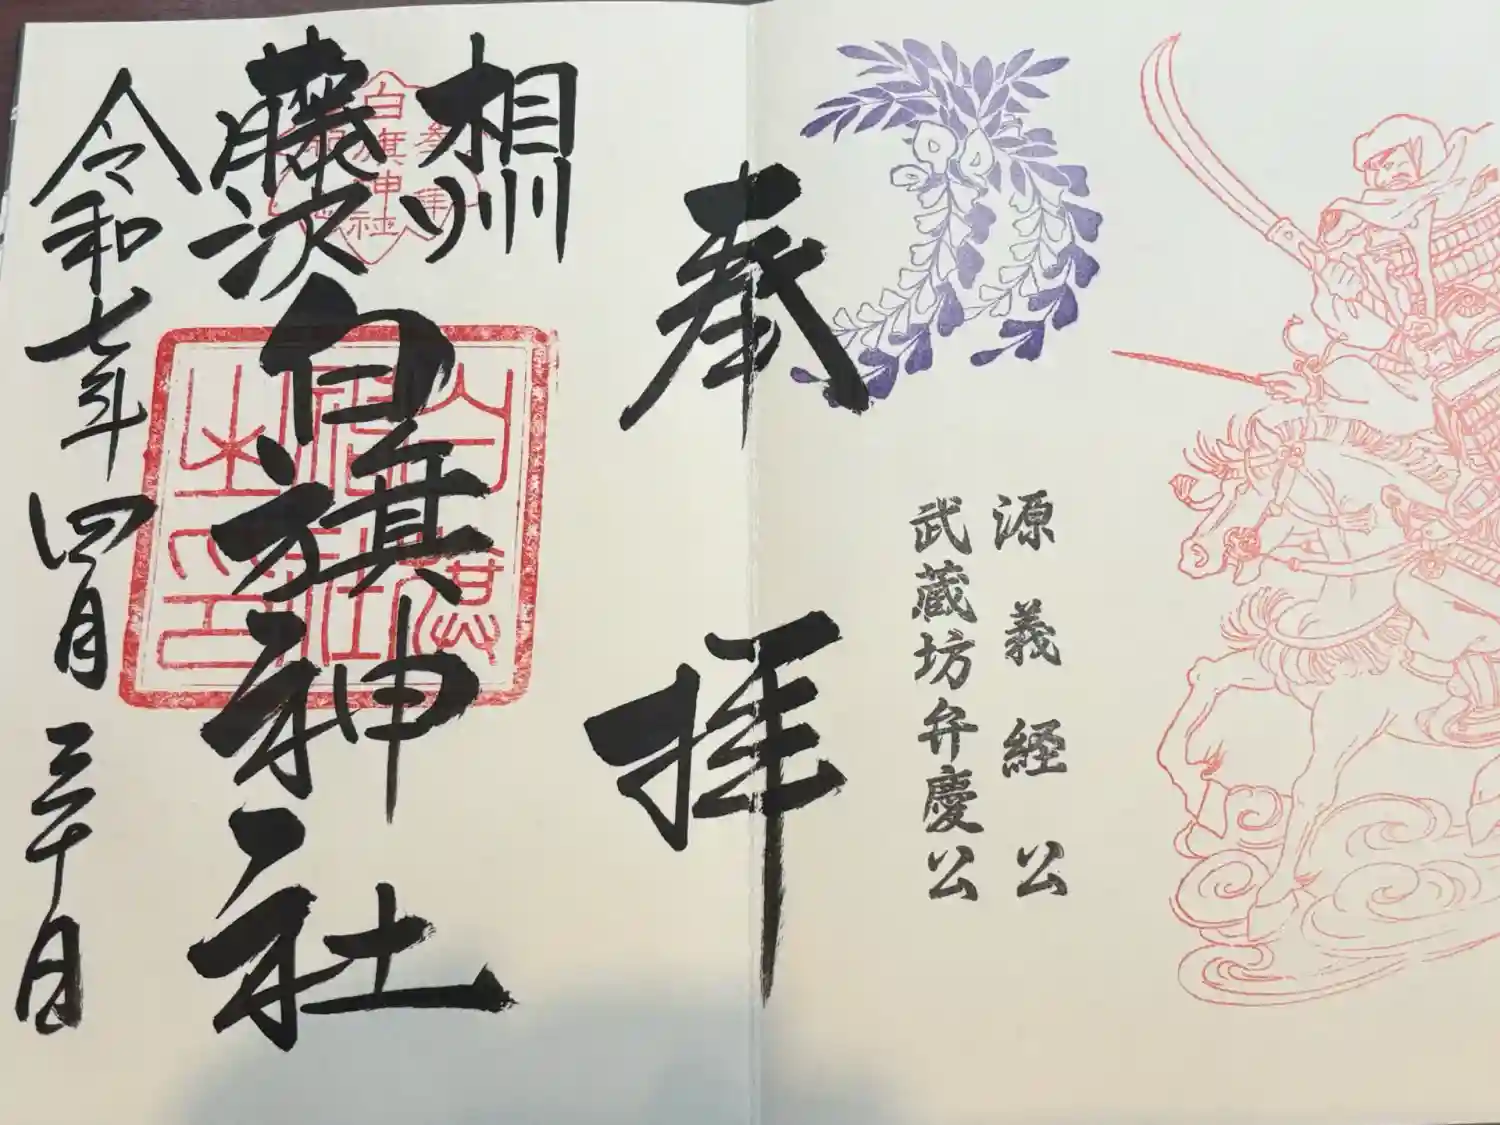 源義経公
武蔵坊弁慶公
奉拝
相州
藤沢
白旗神社
令和七年四月三十日
白旗神社
白旗神社之印